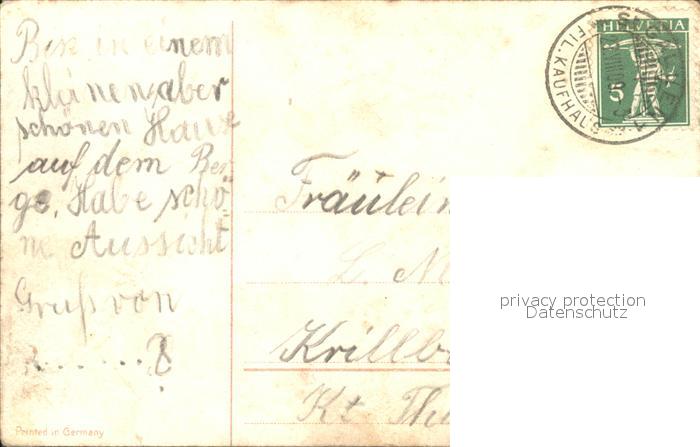 Bin in einem
kleinen, aber
schönen Haus
auf dem Ber-
ge. Habe schö-
ne Aussicht
Gruß von
......?
Fräulein
L. M
Krillb
Kt Thu
HELVETIA
FIL. KAUFHAUS
privacy protection
Datenschutz
Printed in Germany